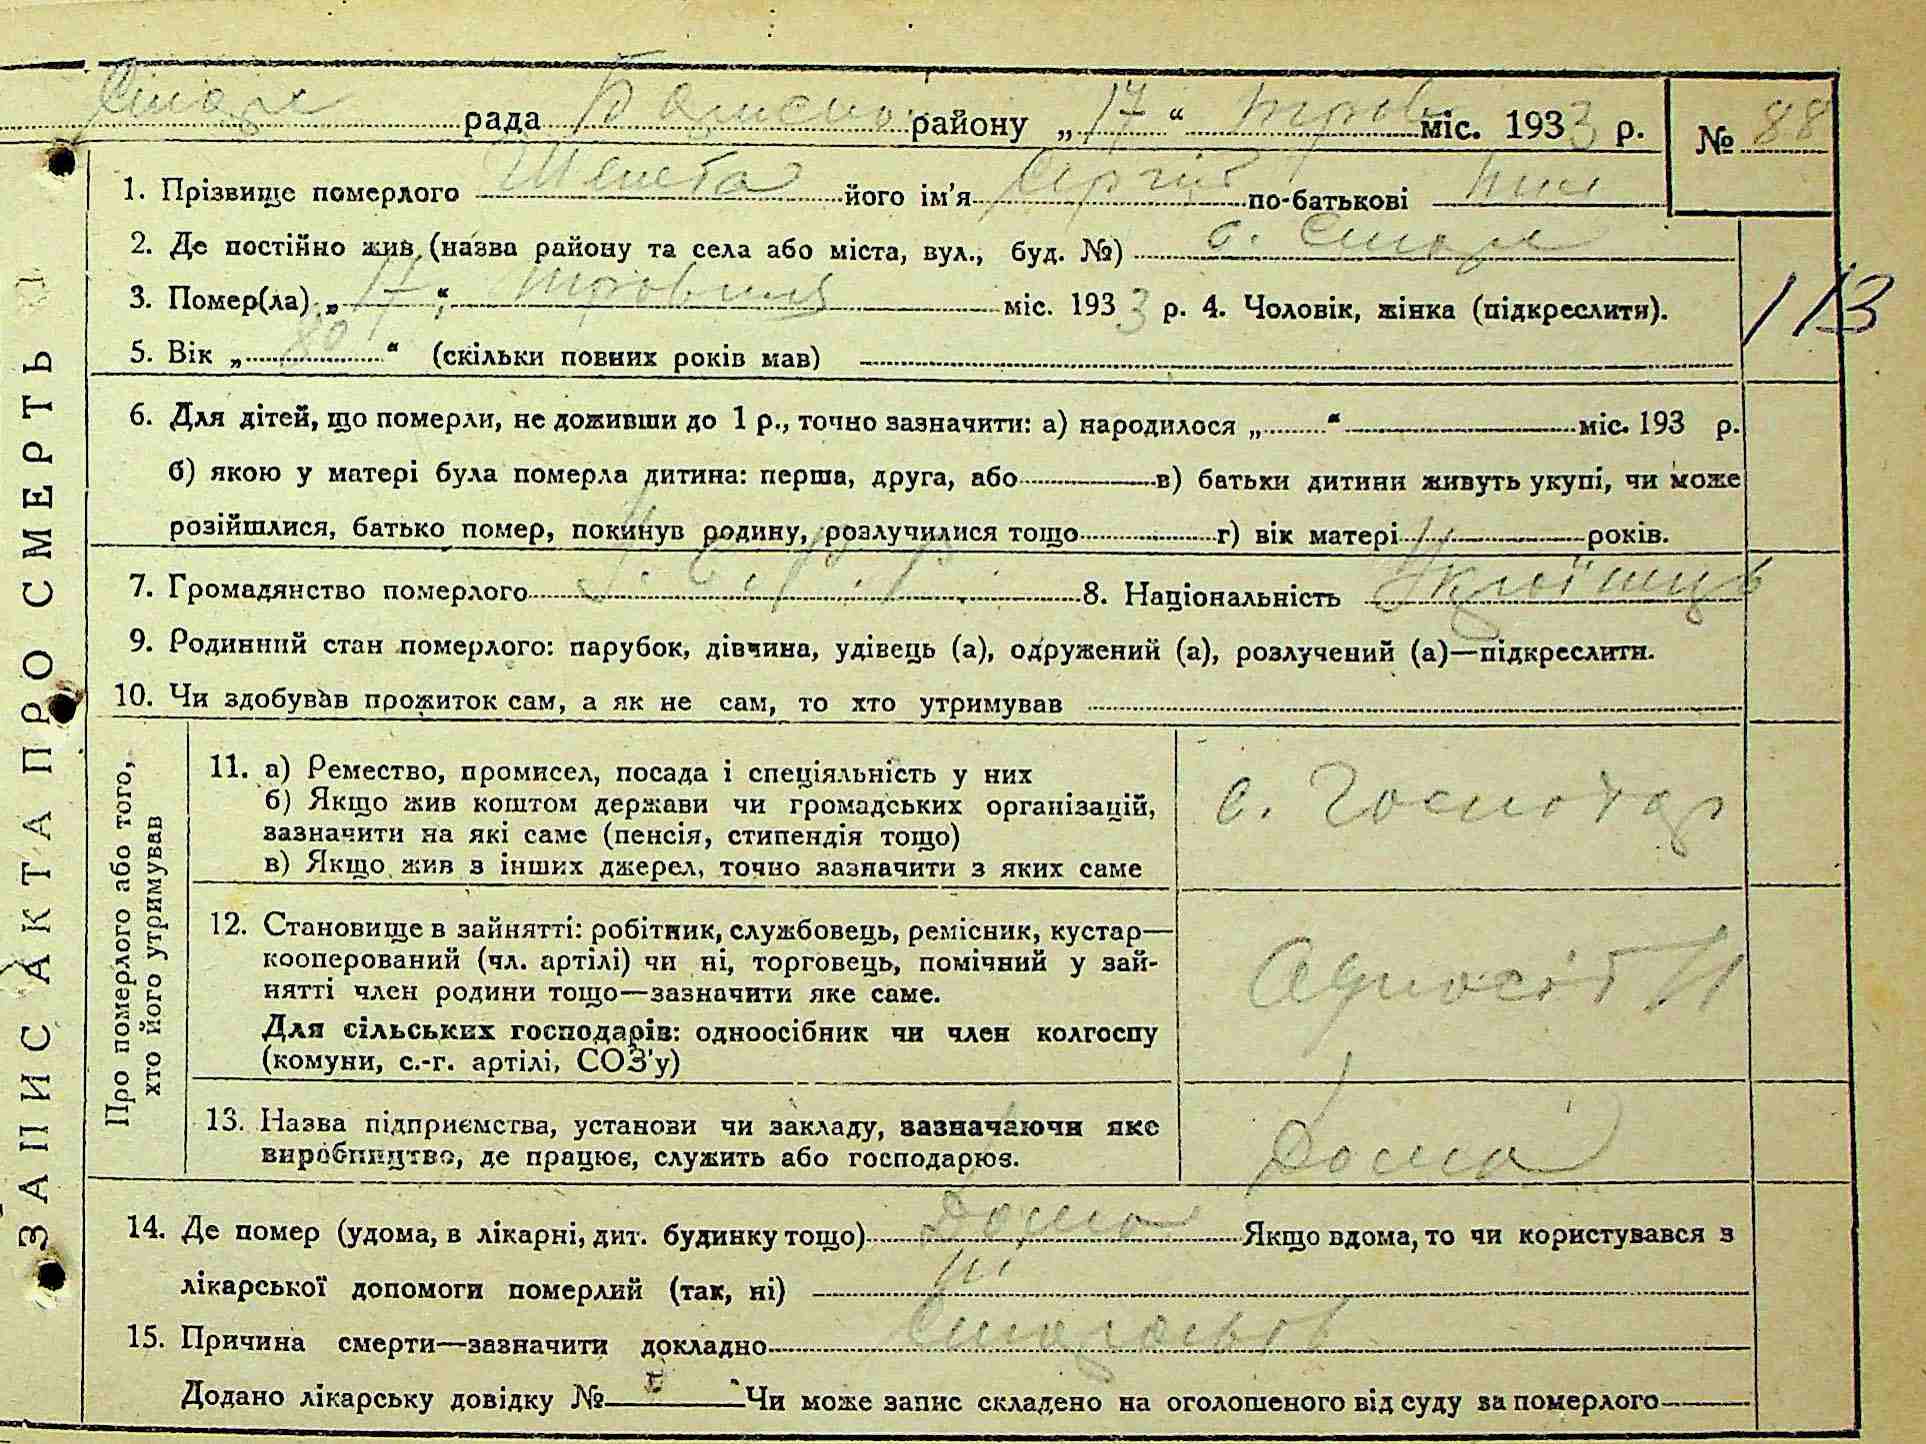 Старе рада району „17“ трав міс. 1933 р. № 88
1. Прізвище померлого Шепета його ім'я Сергій по-батькові
2. Де постійно жив (назва району та села або міста, вул., буд. №) с. Старе
3. Помер(ла) „17“ травня міс. 1933 р. 4. Чоловік, жінка (підкреслити).
113
5. Вік „80“ (скільки повних років мав)
6. Для дітей, що померли, не доживши до 1 р., точно зазначити: а) народилося „ “ міс. 193 р.
б) якою у матері була померла дитина: перша, друга, або в) батьки дитини живуть укупі, чи може
розійшлися, батько помер, покинув родину, розлучилися тощо г) вік матері років.
7. Громадянство померлого У.С.Р.Р. 8. Національність Українць
9. Родинний стан померлого: парубок, дівчина, удівець (а), одружений (а), розлучений (а)—підкреслити.
10. Чи здобував прожиток сам, а як не сам, то хто утримував
ЗАПИС АКТА ПРО СМЕРТЬ
Про померлого або того,
хто його утримував
11. а) Ремество, промисел, посада і спеціяльність у них
б) Якщо жив коштом держави чи громадських організацій,
зазначити на які саме (пенсія, стипендія тощо)
в) Якщо жив з інших джерел, точно зазначити з яких саме
с. Господар
12. Становище в зайнятті: робітник, службовець, ремісник, кустар—
кооперований (чл. артілі) чи ні, торговець, помічний у зай-
нятті член родини тощо—зазначити яке саме.
Для сільських господарів: одноосібник чи член колгоспу
(комуни, с.-г. артілі, СОЗ'у)
13. Назва підприємства, установи чи закладу, зазначаючи яке
виробництво, де працює, служить або господарює.
Дома
14. Де помер (удома, в лікарні, дит. будинку тощо) Дома Якщо вдома, то чи користувався з
лікарської допомоги померлий (так, ні) ні
15. Причина смерти—зазначити докладно
Додано лікарську довідку № Чи може запис складено на оголошеного від суду за померлого